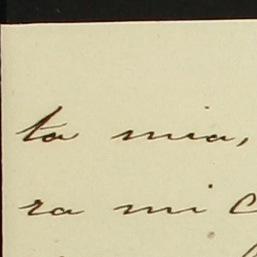 ta mia,
ra mi